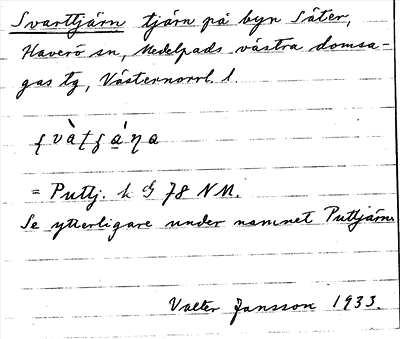 Svarttjärn tjärn på byn Säter,
Haverö sn, Medelpads västra domsa-
gas tg, Västernorrl. l
= Puttj. k G 78 NM.
Se ytterligare under namnet Puttjärn.
Valter Jansson 1933.